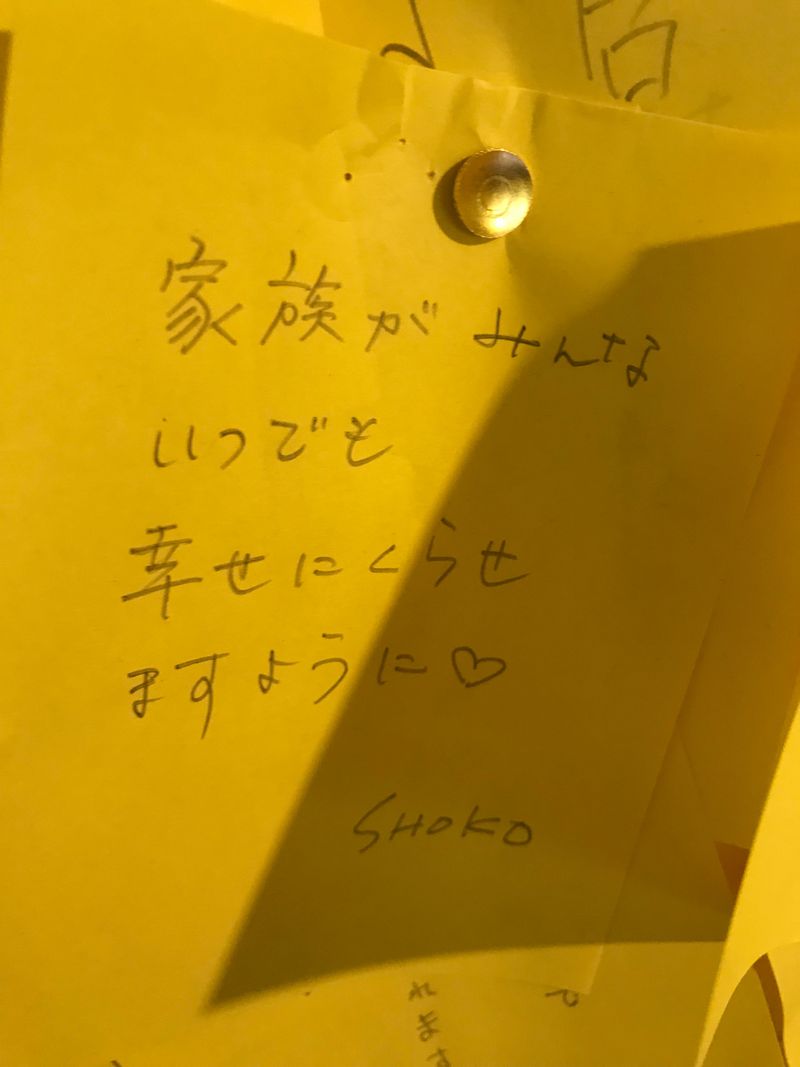 家族がみんな
いつでも
幸せにくらせ
ますように♡
SHOKO
れます